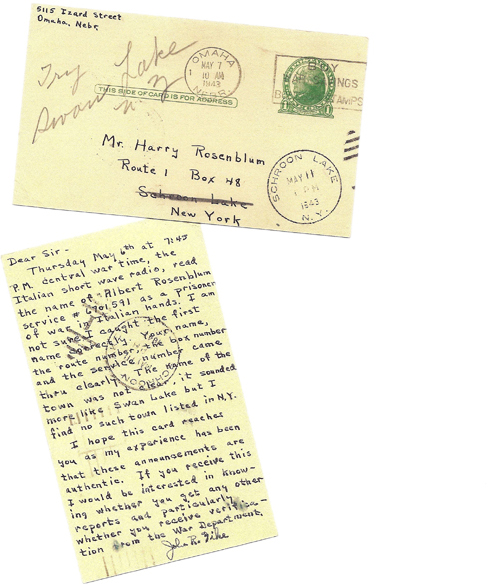 5115 Izard Street
Omaha, Nebr.
Try Lake
Swan
N.Y.
OMAHA
MAY 7
10 AM
1943
NEBR.
BUY
INGS
STAMPS
THIS SIDE OF CARD IS FOR ADDRESS
Mr. Harry Rosenblum
Route 1 Box 48
Schroon Lake
New York
SCHROON LAKE
MAY 11
1943
N.Y.
Dear Sir -
Thursday May 6th at 7:45
P.M. central war time, the
Italian short wave radio, read
the name of Albert Rosenblum
service # 6901591 as a prisoner
of war in Italian hands. I am
not sure I caught the first
name correctly. Your name,
the route number, the box number
and the service number came
thru clearly. The name of the
town was not clear, it sounded
more like Swan Lake but I
find no such town listed in N.Y.
I hope this card reaches
you as my experience has been
that these announcements are
authentic. If you receive this
I would be interested in know-
ing whether you get any other
reports and particularly
whether you receive verifica-
tion from the War Department.
John R.